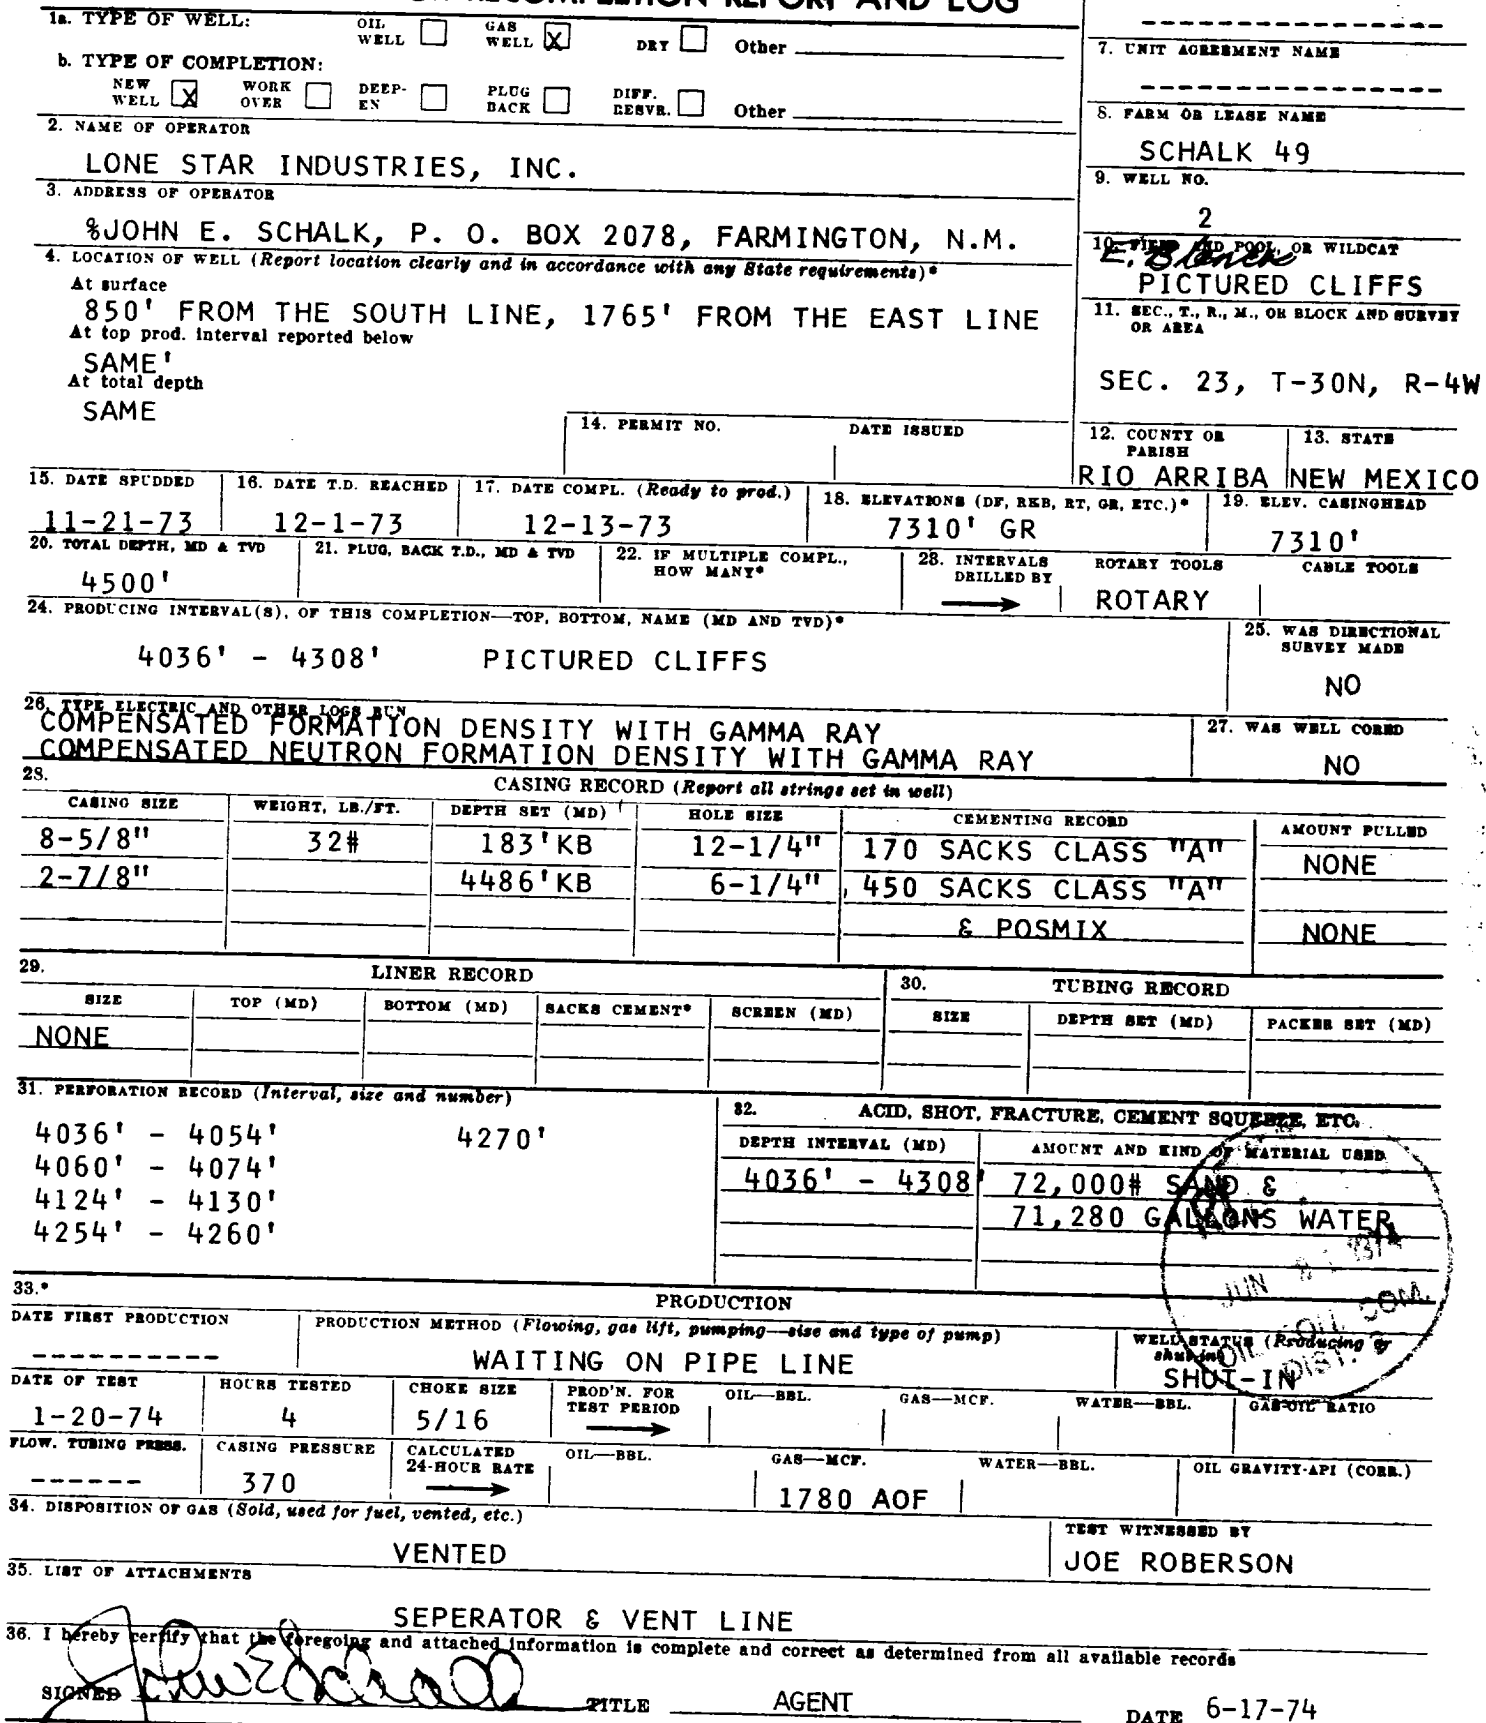 RECOMPLETION REPORT AND LOG
1a. TYPE OF WELL: OIL WELL GAS WELL X DRY Other
b. TYPE OF COMPLETION:
NEW WELL X WORK OVER DEEP-EN PLUG BACK DIFF. RESVR. Other
7. UNIT AGREEMENT NAME
8. FARM OR LEASE NAME
SCHALK 49
9. WELL NO.
2
10. FIELD AND POOL, OR WILDCAT
E. Blanco
PICTURED CLIFFS
11. SEC., T., R., M., OR BLOCK AND SURVEY OR AREA
SEC. 23, T-30N, R-4W
2. NAME OF OPERATOR
LONE STAR INDUSTRIES, INC.
3. ADDRESS OF OPERATOR
%JOHN E. SCHALK, P. O. BOX 2078, FARMINGTON, N.M.
4. LOCATION OF WELL (Report location clearly and in accordance with any State requirements)*
At surface
850' FROM THE SOUTH LINE, 1765' FROM THE EAST LINE
At top prod. interval reported below
SAME'
At total depth
SAME
14. PERMIT NO. DATE ISSUED
12. COUNTY OR PARISH
RIO ARRIBA
13. STATE
NEW MEXICO
15. DATE SPUDDED
11-21-73
16. DATE T.D. REACHED
12-1-73
17. DATE COMPL. (Ready to prod.)
12-13-73
18. ELEVATIONS (DF, RKB, RT, GR, ETC.)*
7310' GR
19. ELEV. CASINGHEAD
7310'
20. TOTAL DEPTH, MD & TVD
4500'
21. PLUG, BACK T.D., MD & TVD
22. IF MULTIPLE COMPL., HOW MANY*
23. INTERVALS DRILLED BY
ROTARY TOOLS
ROTARY
CABLE TOOLS
24. PRODUCING INTERVAL(S), OF THIS COMPLETION—TOP, BOTTOM, NAME (MD AND TVD)*
4036' - 4308' PICTURED CLIFFS
25. WAS DIRECTIONAL SURVEY MADE
NO
26. TYPE ELECTRIC AND OTHER LOGS RUN
COMPENSATED FORMATION DENSITY WITH GAMMA RAY
COMPENSATED NEUTRON FORMATION DENSITY WITH GAMMA RAY
27. WAS WELL CORED
NO
28. CASING RECORD (Report all strings set in well)
CASING SIZE WEIGHT, LB./FT. DEPTH SET (MD) HOLE SIZE CEMENTING RECORD AMOUNT PULLED
8-5/8" 32# 183'KB 12-1/4" 170 SACKS CLASS "A" NONE
2-7/8" 4486'KB 6-1/4" 450 SACKS CLASS "A"
& POSMIX NONE
29. LINER RECORD
SIZE TOP (MD) BOTTOM (MD) SACKS CEMENT* SCREEN (MD)
NONE
30. TUBING RECORD
SIZE DEPTH SET (MD) PACKER SET (MD)
31. PERFORATION RECORD (Interval, size and number)
4036' - 4054' 4270'
4060' - 4074'
4124' - 4130'
4254' - 4260'
32. ACID, SHOT, FRACTURE, CEMENT SQUEEZE, ETC.
DEPTH INTERVAL (MD) AMOUNT AND KIND OF MATERIAL USED
4036' - 4308' 72,000# SAND &
71,280 GALLONS WATER
JUN 1974
OIL CON. COM.
DIST. 3
33.* PRODUCTION
DATE FIRST PRODUCTION
PRODUCTION METHOD (Flowing, gas lift, pumping—size and type of pump)
WAITING ON PIPE LINE
WELL STATUS (Producing or shut-in)
SHUT-IN
DATE OF TEST HOURS TESTED CHOKE SIZE PROD'N. FOR TEST PERIOD OIL—BBL. GAS—MCF. WATER—BBL. GAS-OIL RATIO
1-20-74 4 5/16
FLOW. TUBING PRESS. CASING PRESSURE CALCULATED 24-HOUR RATE OIL—BBL. GAS—MCF. WATER—BBL. OIL GRAVITY-API (CORR.)
------ 370 1780 AOF
34. DISPOSITION OF GAS (Sold, used for fuel, vented, etc.)
VENTED
TEST WITNESSED BY
JOE ROBERSON
35. LIST OF ATTACHMENTS
SEPERATOR & VENT LINE
36. I hereby certify that the foregoing and attached information is complete and correct as determined from all available records
SIGNED John E Schalk TITLE AGENT DATE 6-17-74